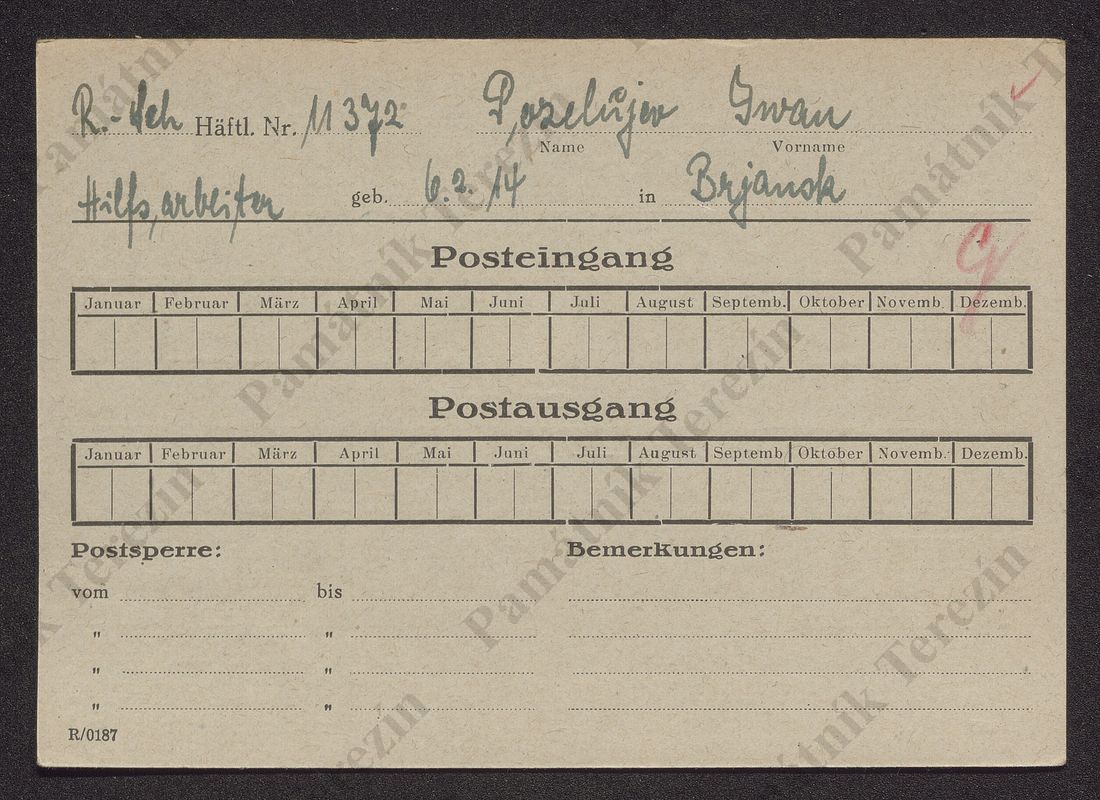 R.-Sch Häftl. Nr. 11372 Pozelŭjev Iwan
Name Vorname
Hilfsarbeiter geb. 6.2.14 in Brjansk
Posteingang
Januar Februar März April Mai Juni Juli August Septemb. Oktober Novemb. Dezemb.
Postausgang
Januar Februar März April Mai Juni Juli August Septemb Oktober Novemb. Dezemb.
Postsperre: Bemerkungen:
vom bis
" "
" "
" "
R/0187
Památník Terezín